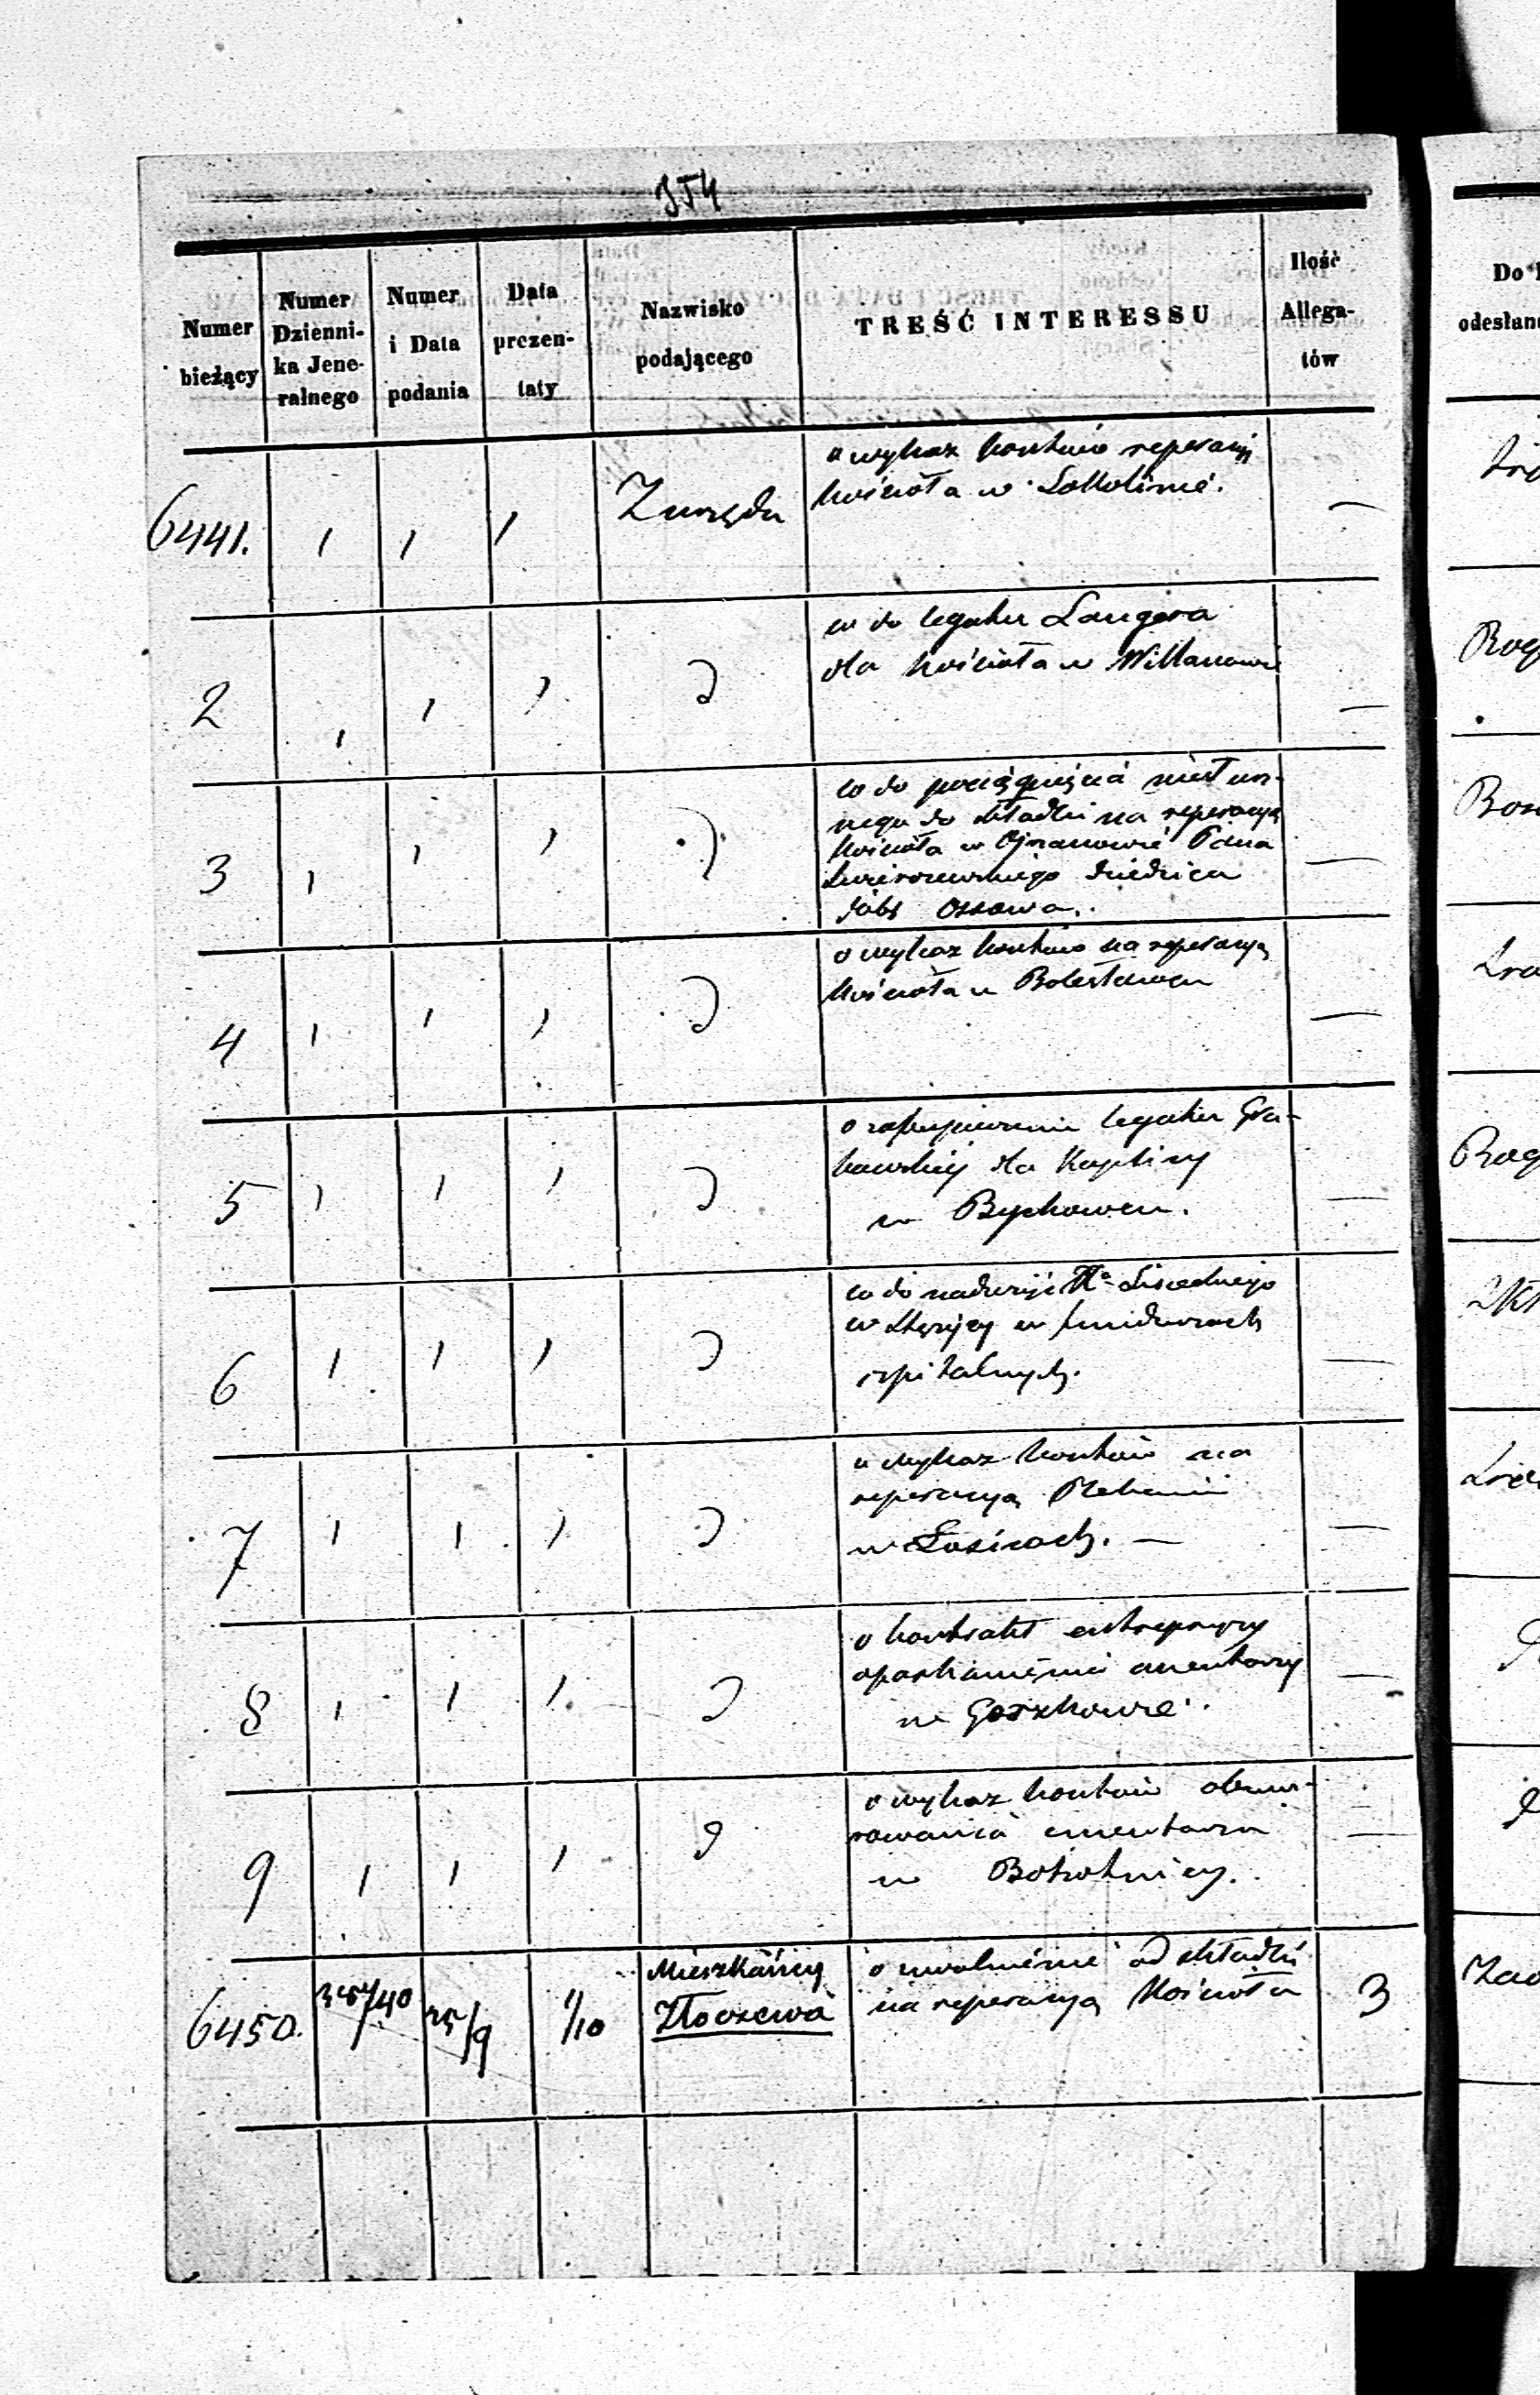 354
Numer bieżący
Numer Dzienni-ka Jene-ralnego
Numer i Data podania
Data prezen-taty
Nazwisko podającego
TREŚĆ INTERESSU
Ilość Allega-tów
Do
odesłan
6441.
Z urzędu
o wykaz kosztów reperacyi
kościoła w Sokolinie.
—
2
co do legatu Langera
dla kościoła w Willanowie
—
3
co do pociągnięcia
nego do składki na reperacyą
kościoła w Pana
dziedzica
dóbr Ossowa.
—
4
o wykaz kosztów na reperacyą
kościoła w Bolesławcu
—
5
o legatu Gra-
bowskiej dla Kaplicy
w Bychowcu.
—
6
co do nadużyć
w Stężycy w funduszach
szpitalnych.
—
7
o wykaz kosztów na
reperacyą Plebanii
w Łosicach. —
—
8
o kontrakt entrepryzy
oparkanienia cmentarzy
w Gorzkowie.
—
9
o wykaz kosztów obmu-
rowania cmentarza
w
—
6450.
25/9
1/10
Mieszkańcy
Złoczewa
o uwolnienie od składki
na reperacyą Kościoła
3